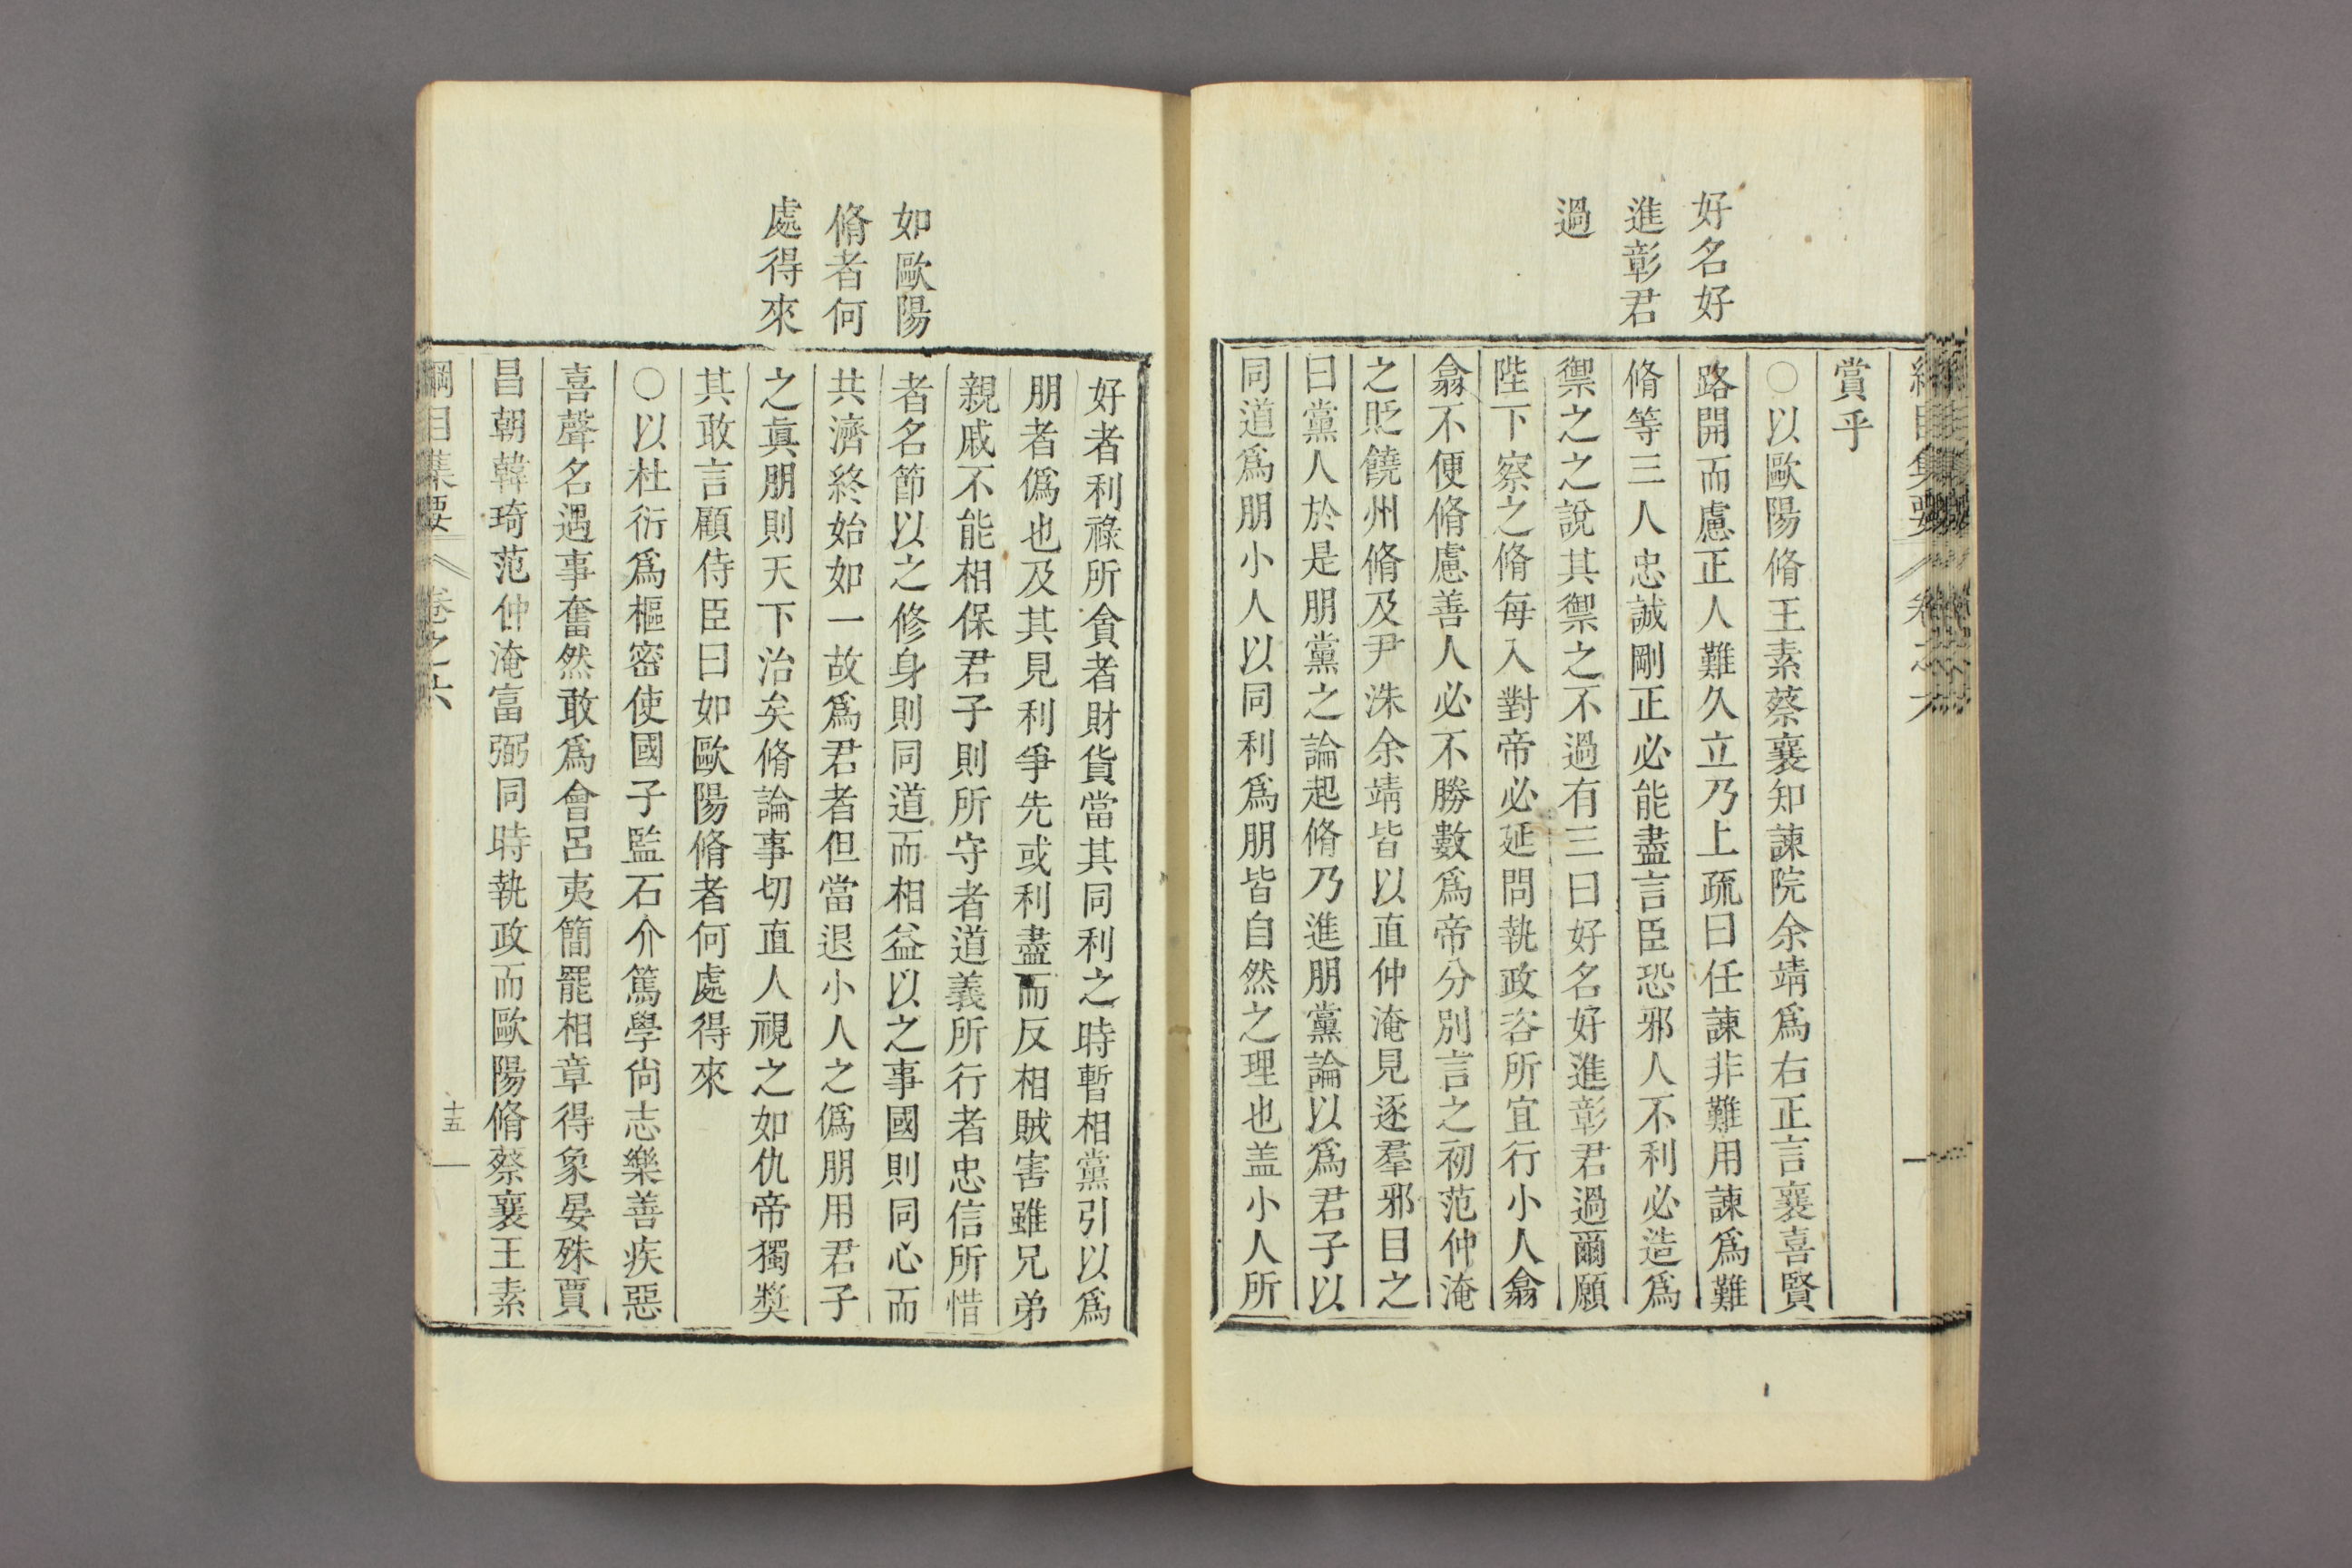 好名好
進彰君
過
賞乎
○以歐陽脩王素蔡襄知諫院余靖爲右正言襄喜賢
路開而慮正人難久立乃上疏曰任諫非難用諫爲難
脩等三人忠誠剛正必能盡言臣恐邪人不利必造爲
禦之之說其禦之不過有三曰好名好進彰君過爾願
陛下察之脩每入對帝必延問執政咨所宜行小人翕
翕不便脩慮善人必不勝數爲帝分別言之初范仲淹
之貶饒州脩及尹洙余靖皆以直仲淹見逐羣邪目之
曰黨人於是朋黨之論起脩乃進朋黨論以爲君子以
同道爲朋小人以同利爲朋皆自然之理也盖小人所
如歐陽
脩者何
處得來
好者利祿所貪者財貨當其同利之時暫相黨引以爲
朋者僞也及其見利爭先或利盡而反相賊害雖兄弟
親戚不能相保君子則所守者道義所行者忠信所惜
者名節以之修身則同道而相益以之事國則同心而
共濟終始如一故爲君者但當退小人之僞朋用君子
之眞朋則天下治矣脩論事切直人視之如仇帝獨奬
其敢言顧侍臣曰如歐陽脩者何處得來
○以杜衍爲樞密使國子監石介篤學尙志樂善疾惡
喜聲名遇事奮然敢爲會呂夷簡罷相章得象晏殊賈
昌朝韓琦范仲淹富弼同時執政而歐陽脩蔡襄王素
綱目集要 卷之六 十五